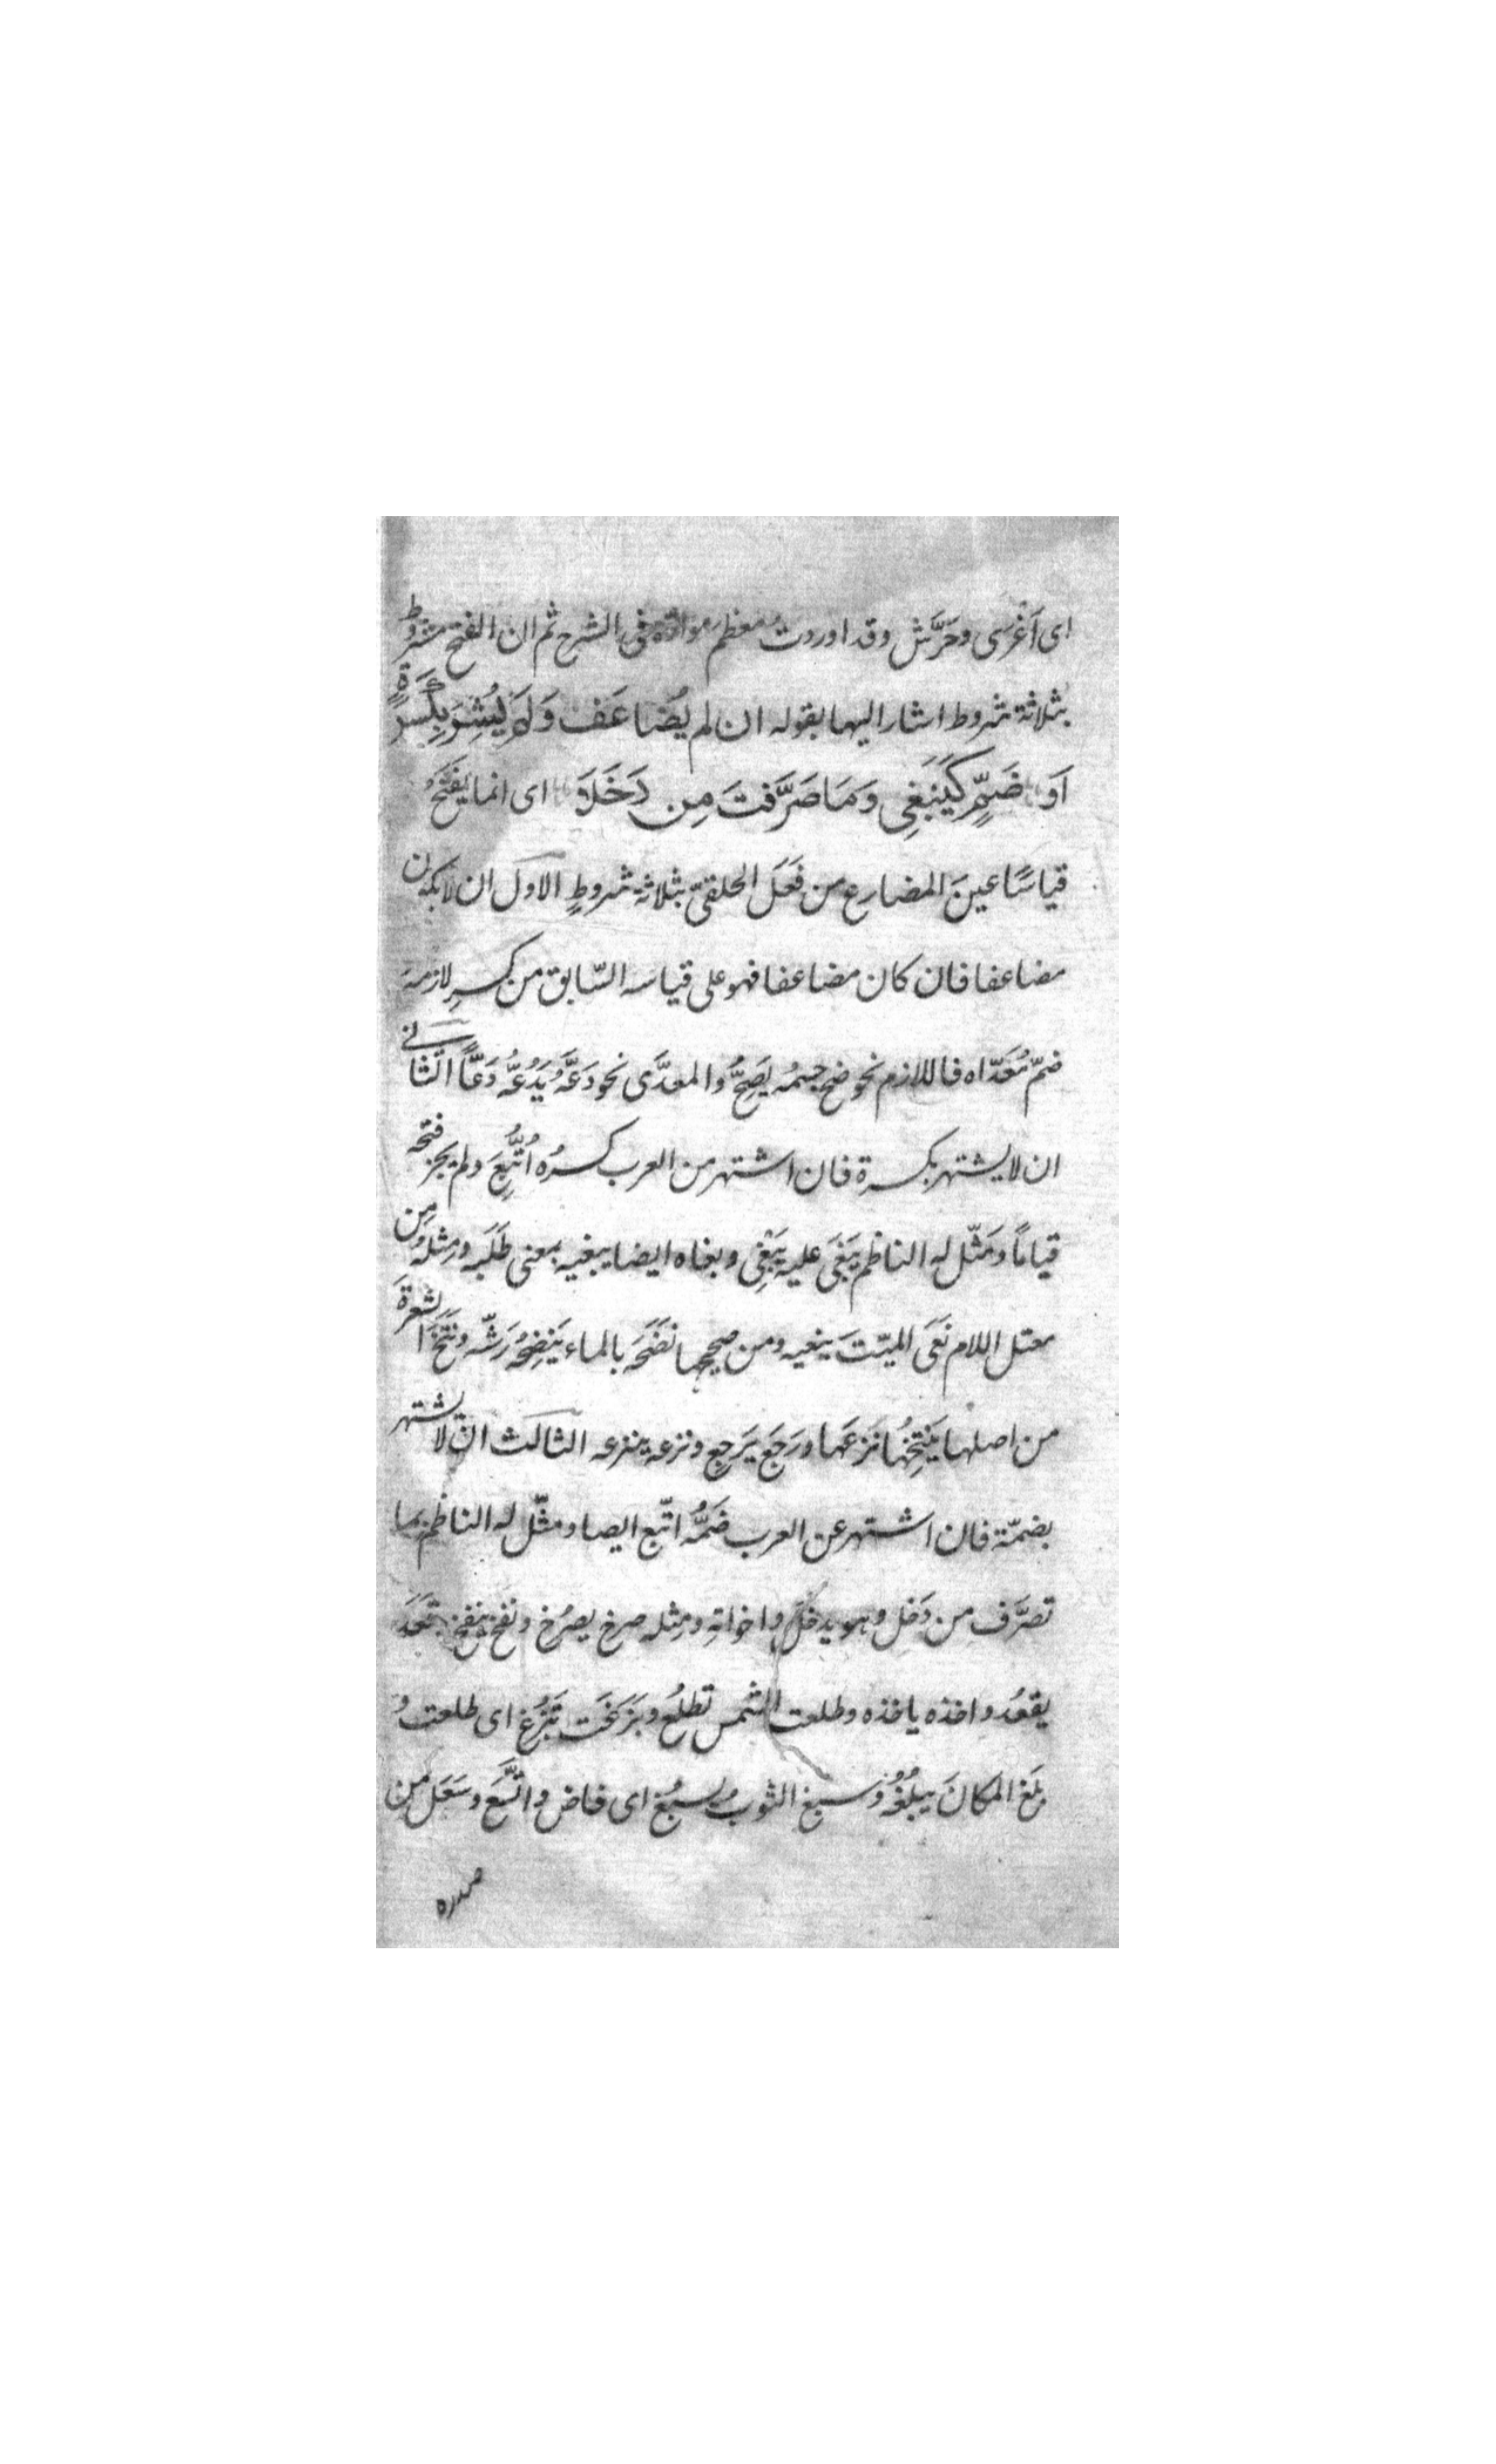 اى اَغْرَى وحَرَّش وقد اوردت معظم موادّه فى الشرح ثم ان الفتح مشروط
بثلاثة شروط اشار اليها بقوله ان لم يُضَاعَف وَلَم يُشْهَر بِكَسرَةٍ
اَو ضَمٍّ كَيَبْغِى وَمَا صَرَّفتَ مِن دَخَلَا اى انما يُفْتَحُ
قياسًا عينَ المضارع من فَعَلَ الحلقىّ بثلاثة شروطٍ الاول ان لا يكون
مضاعفا فان كان مضاعفا فهو على قياسه السّابق من كسرِ لازمه
ضمّ مُعَدّاه فاللازم نحو صح جسمُه يَصِحُّ والمعدَّى نحو دَعَّهُ يَدُعُّهُ دَعًّا الثانى
ان لا يشتهر بكسرة فان اشتهر من العرب كسرُه اُتُّبِعَ ولم يجز فتحه
قياسًا ومَثّل له الناظم بَغَى عليه يَبْغِى وبغاه ايضا يبغيه بمعنى طَلَبَه ومِثلُه مِن
معتل اللام نَعَى الميّتَ ينعيه ومن صحيحها نَضَحَه بالماء يَنضِحُه رَشّه ونَتَخَ الشعرةَ
من اصلها يَنْتِخُها نَزَعَها ورَجَع يَرجِع ونزعه ينزعه الثالث ان لا يشتهر
بضمّة فان اشتهر عن العرب ضَمُّه اتّبع ايضا ومثّل له الناظم بما
تصرَّف من دَخل وهو يدخُل واخواتِه ومِثله صرخ يصرُخ ونفخ ينفخ قعَدَ
يقعُد واخذه ياخذه وطلعت الشمس تطلُع وبَزَغَت تَبزُغ اى طلعت و
بلَغ المكانَ يبلُغُه وسبغ الثوب يسبُغ اى فاض واتّسَع وسَعَل مِن
صدره